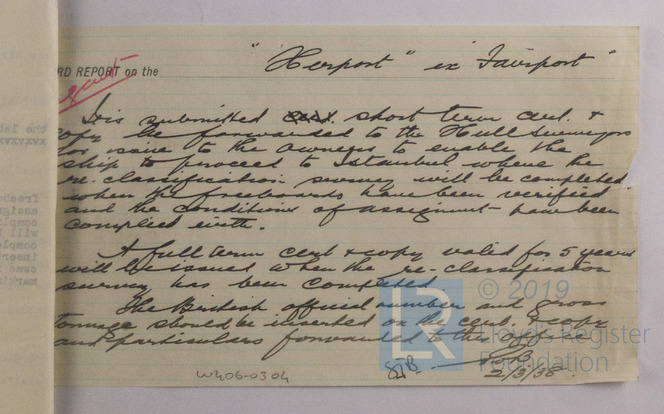 "Herport" ex "Fairport"
RD REPORT on the
It is submitted short term cert. &
copy be forwarded to the Hull Surveyors
for issue to the owners to enable the
ship to proceed to Istanbul where the
re-classification survey will be completed
when the freeboards have been verified
and the conditions of assignment have been
complied with.
A full term cert & copy valid for 5 years
will be issued when the re-classification
survey has been completed.
The British official number and gross
tonnage should be inserted on the cert. & copy
and particulars forwarded to this off
2/3/38.
W406-0304
© 2019
LR
Lloyd's Register
Foundation